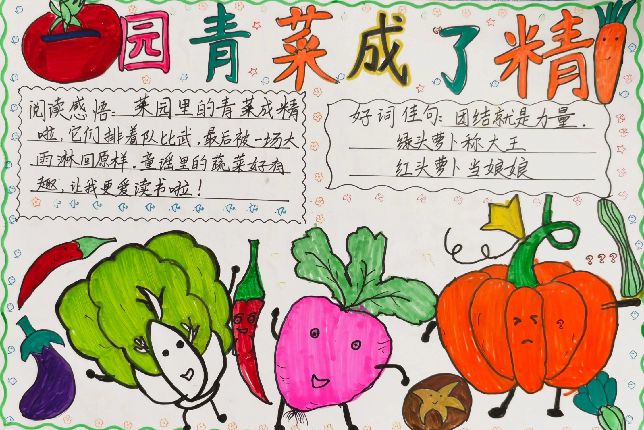 园青菜成了精
阅读感悟：菜园里的青菜成精
啦，它们排着队比武，最后被一场大
雨淋回原样，童谣里的蔬菜好有
趣，让我更爱读书啦！
好词佳句：团结就是力量，
绿头萝卜称大王
红头萝卜当娘娘
???